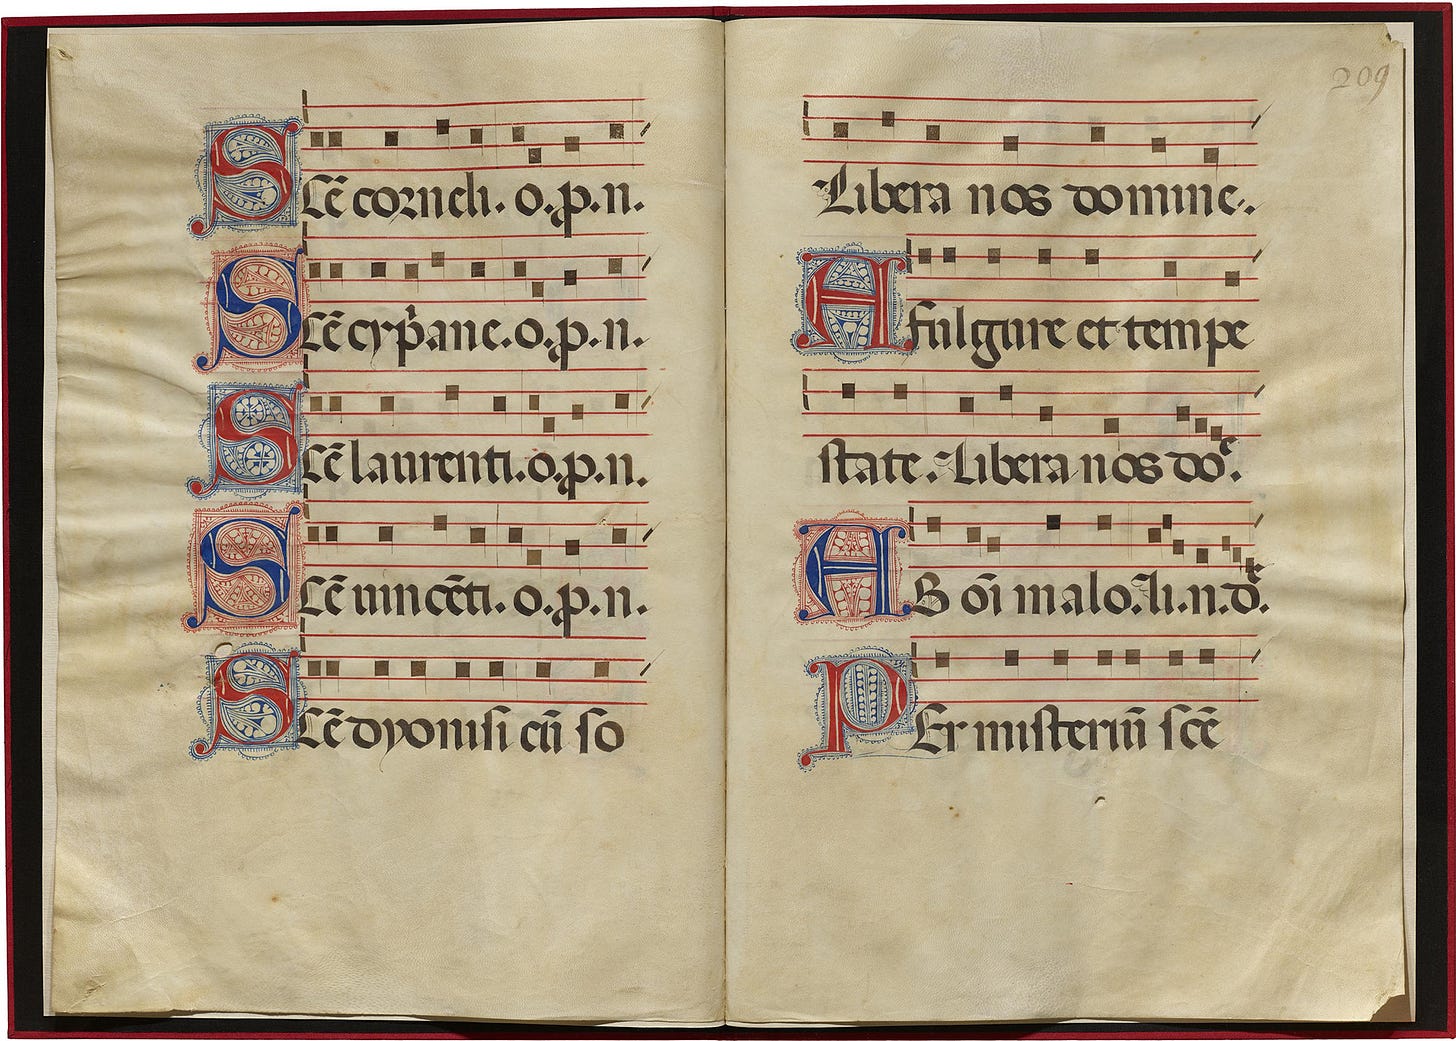 Sc̄e corneli. o. p. n.
Sc̄e cyp̄riane. o. p. n.
Sc̄e laurenti. o. p. n.
Sc̄e uincēti. o. p. n.
Sc̄e dyonisi cū so
209
Libera nos domine.
A fulgure et tempe
state. Libera nos do͂.
AB oı̄ malo. li. n. d͂.
PEr misteriū sc̄e